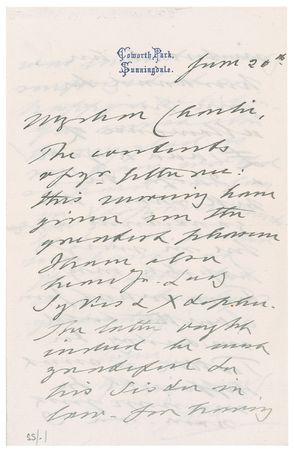 Coworth Park,
Sunningdale.
June 20th
My dear Charlie,
The contents
of yr. letter rec:
this morning have
given me the
greatest pleasure
I have also
heard fr. Lady
Sykes & Xtopher.
The latter ought
indeed be most
grateful to
his Sister in
law - for having